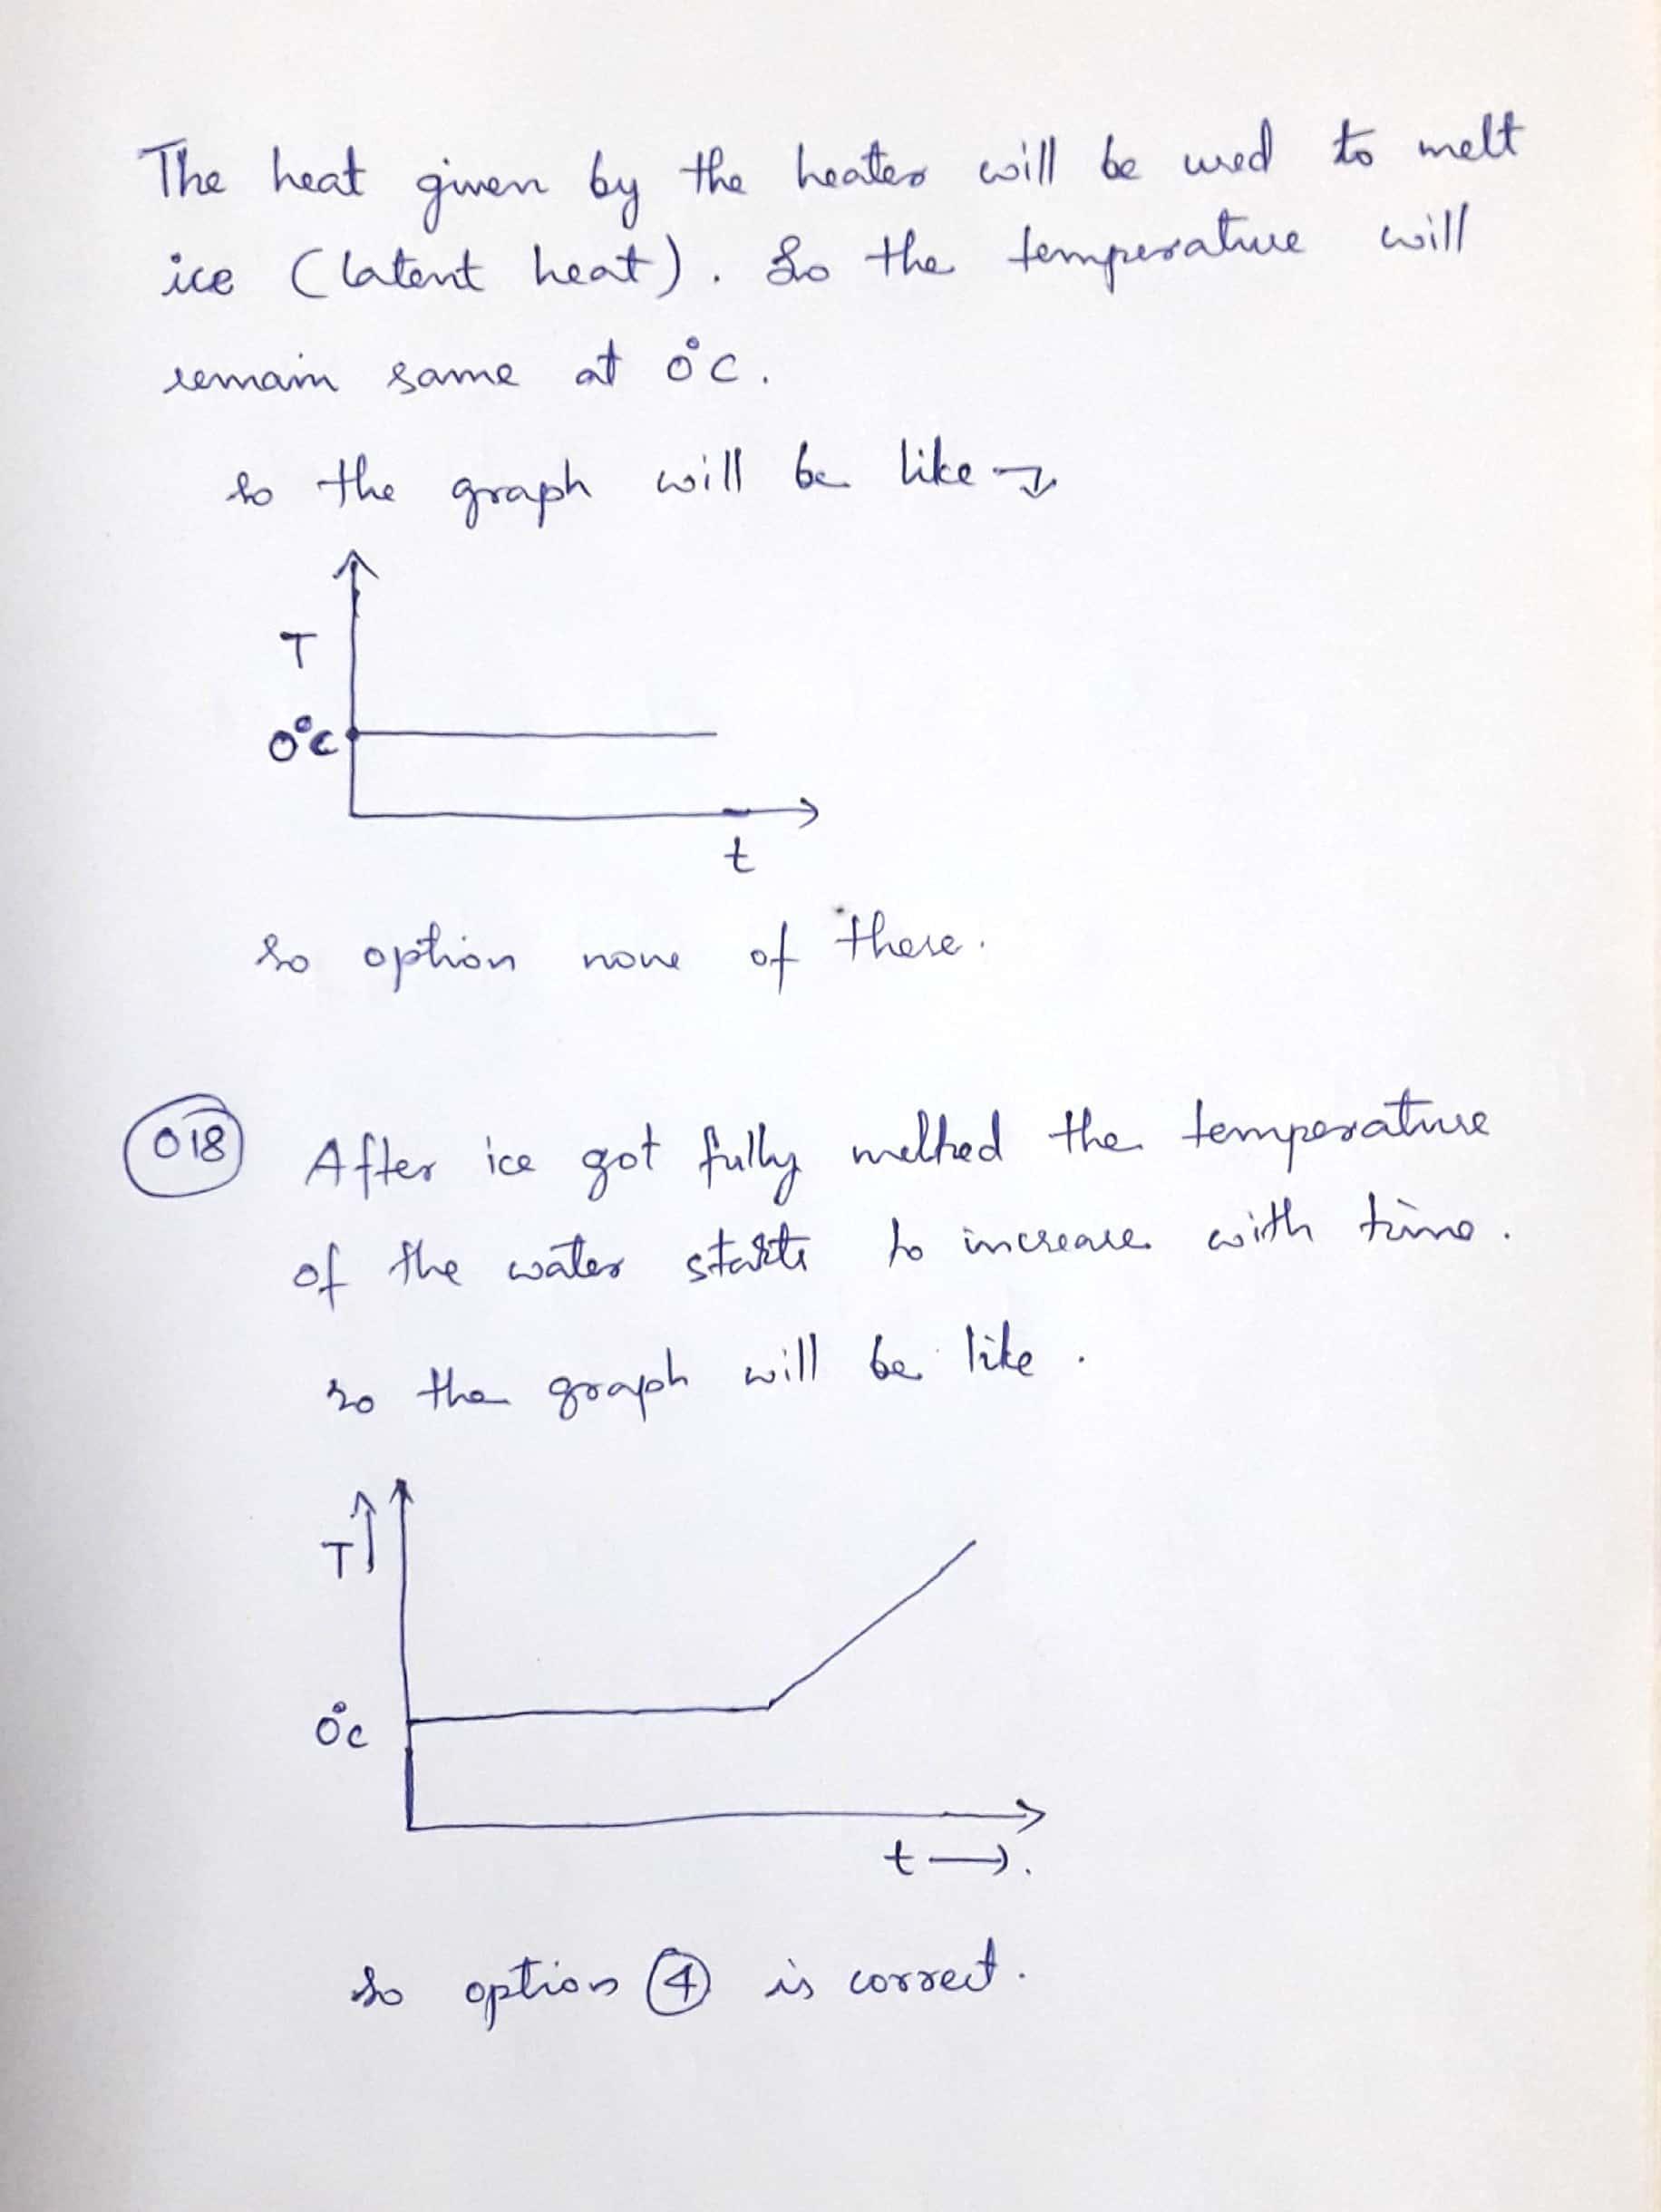 The heat given by the heater will be used to melt
ice (latent heat). So the temperature will
remain same at 0°C.
So the graph will be like →
T
0°C
t
So option none of these.
018 After ice got fully melted the temperature
of the water starts to increase with time.
so the graph will be like.
T↑
0°C
t→.
So option 4 is correct.